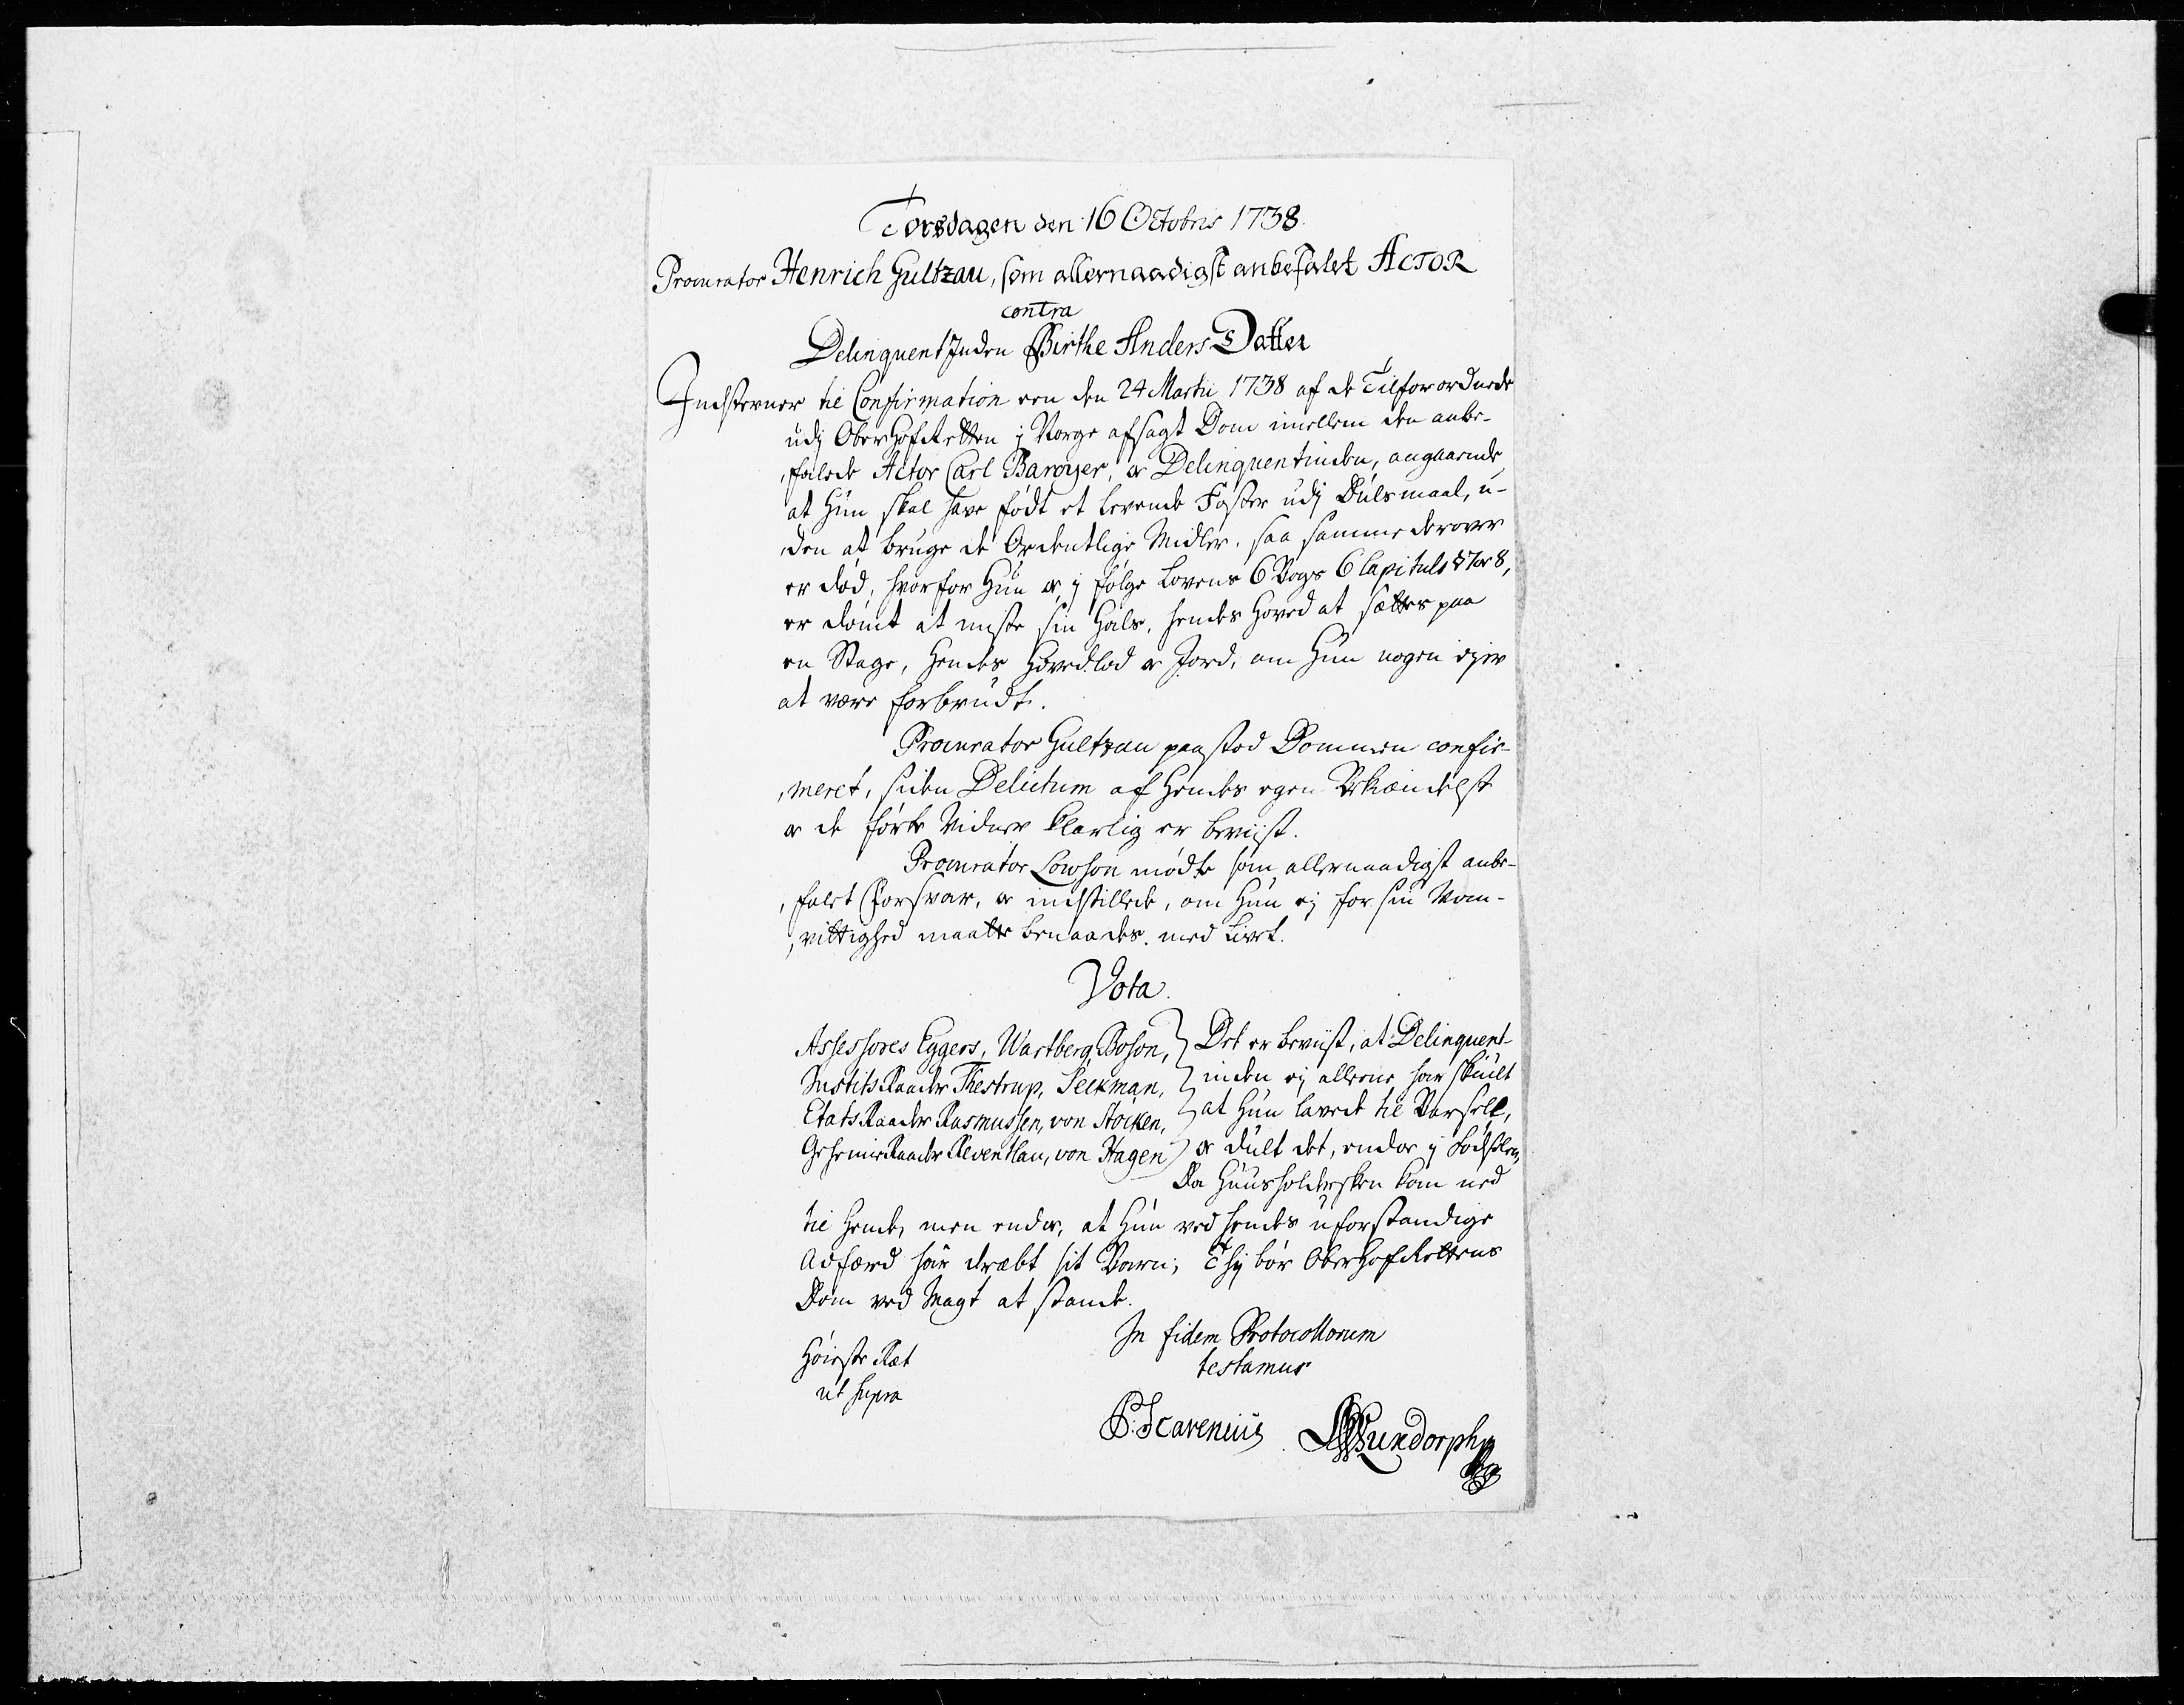 Torsdagen den 16 Octobris 1738.
Procurator Henrich Gultzau, som allernaadigst anbefalet ACTOR
contra
Delinquentinden Birthe Anders Datter
Indstevner til Confirmation een den 24 Martii 1738 af de Tilforordnede
udj OberHofRetten j Norge afsagt Dom imellem den anbe-
falede Actor Carl Baroyer, og Delinquentinden, angaaende
at Hun skal have født et levende Foster udj Dulsmaal, u-
den at bruge de Ordentlige Midler, saa samme derover
er død, hvorfor Hun er, j følge Lovens 6 Bogs 6 Capituls § 7 og 8,
er dømt at miste sin Hals, hendes Hoved at sættes paa
en Stage, Hendes Hovedlod og Jord, om Hun nogen ejer
at være forbrudt.
Procurator Gultzau paastod Dommen confir-
meret, siden Delictum af Hendes egen Bekiændelse
og de førte Vidner klarlig er beviist.
Procurator Lowson mødte som allernaadigst anbe-
falet Forsvar, og indstillede, om Hun ej for sin Van-
vittighed maatte benaades med Livet.
Vota.
Assessores Eggers, Wartberg, Boson, Det er beviist, at Delinquent-
JustitsRaader Thestrup, Seckman, inden ej allene har skiult
EtatsRaader Rasmussen, von Stöcken, at Hun lavede til Barsell,
GeheimeRaader Reventlau, von Hagen og dult det, endog j Fødselen,
Da Huusholdersken kom ned
til Hende, men endog, at Hun ved hendes uforstandige
Adfærd har dræbt sit Barn; Thj bør OberHofRettens
Dom ved Magt at stande.
In fidem Protocollorum
testamur
Høieste Ret
ut supra
P: Scavenius